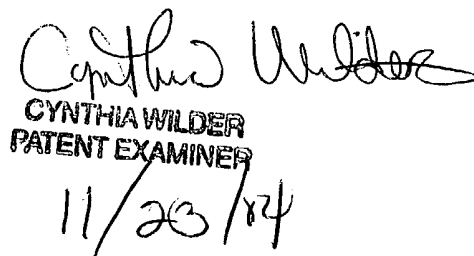 Cynthia Wilder
CYNTHIA WILDER
PATENT EXAMINER